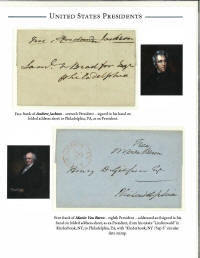 UNITED STATES PRESIDENTS
Free Andrew Jackson
Philadelphia
Free frank of Andrew Jackson – seventh President – signed in his hand on
folded address sheet to Philadelphia, PA, as ex-President.
Free
M Van Buren
Henry D. Gilpin Esq
Philadelphia
Free frank of Martin Van Buren – eighth President – addressed and signed in his
hand on folded address sheet, as ex-President, from his estate "Lindenwald" in
Kinderhook, NY, to Philadelphia, PA, with "Kinderhook, NY / Sep 5" circular
date stamp.